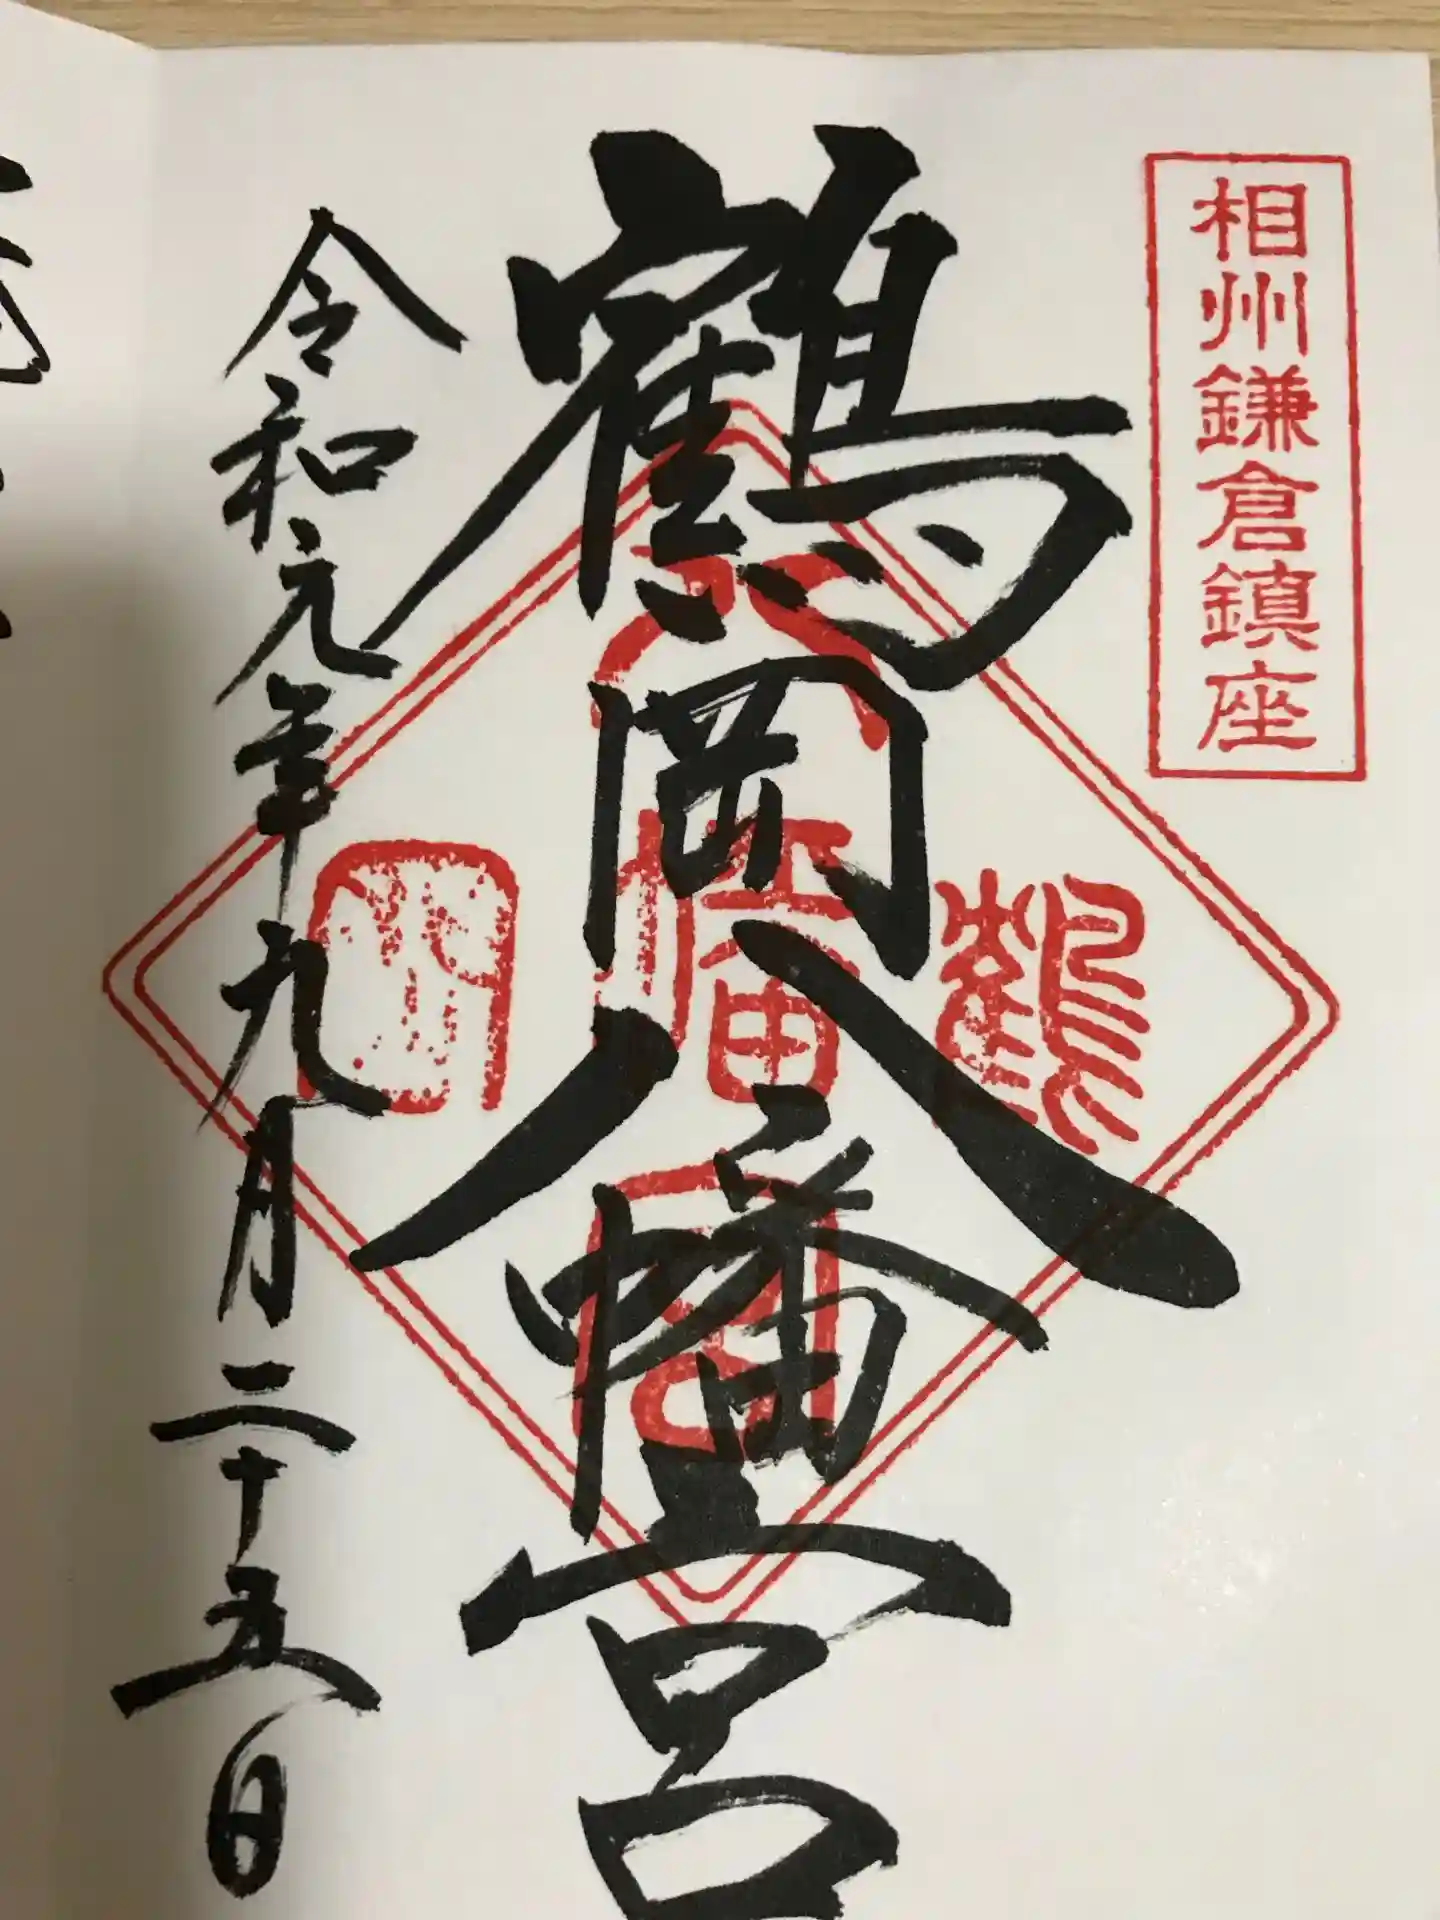 相州鎌倉鎮座
鶴岡八幡宮
令和元年九月二十五日